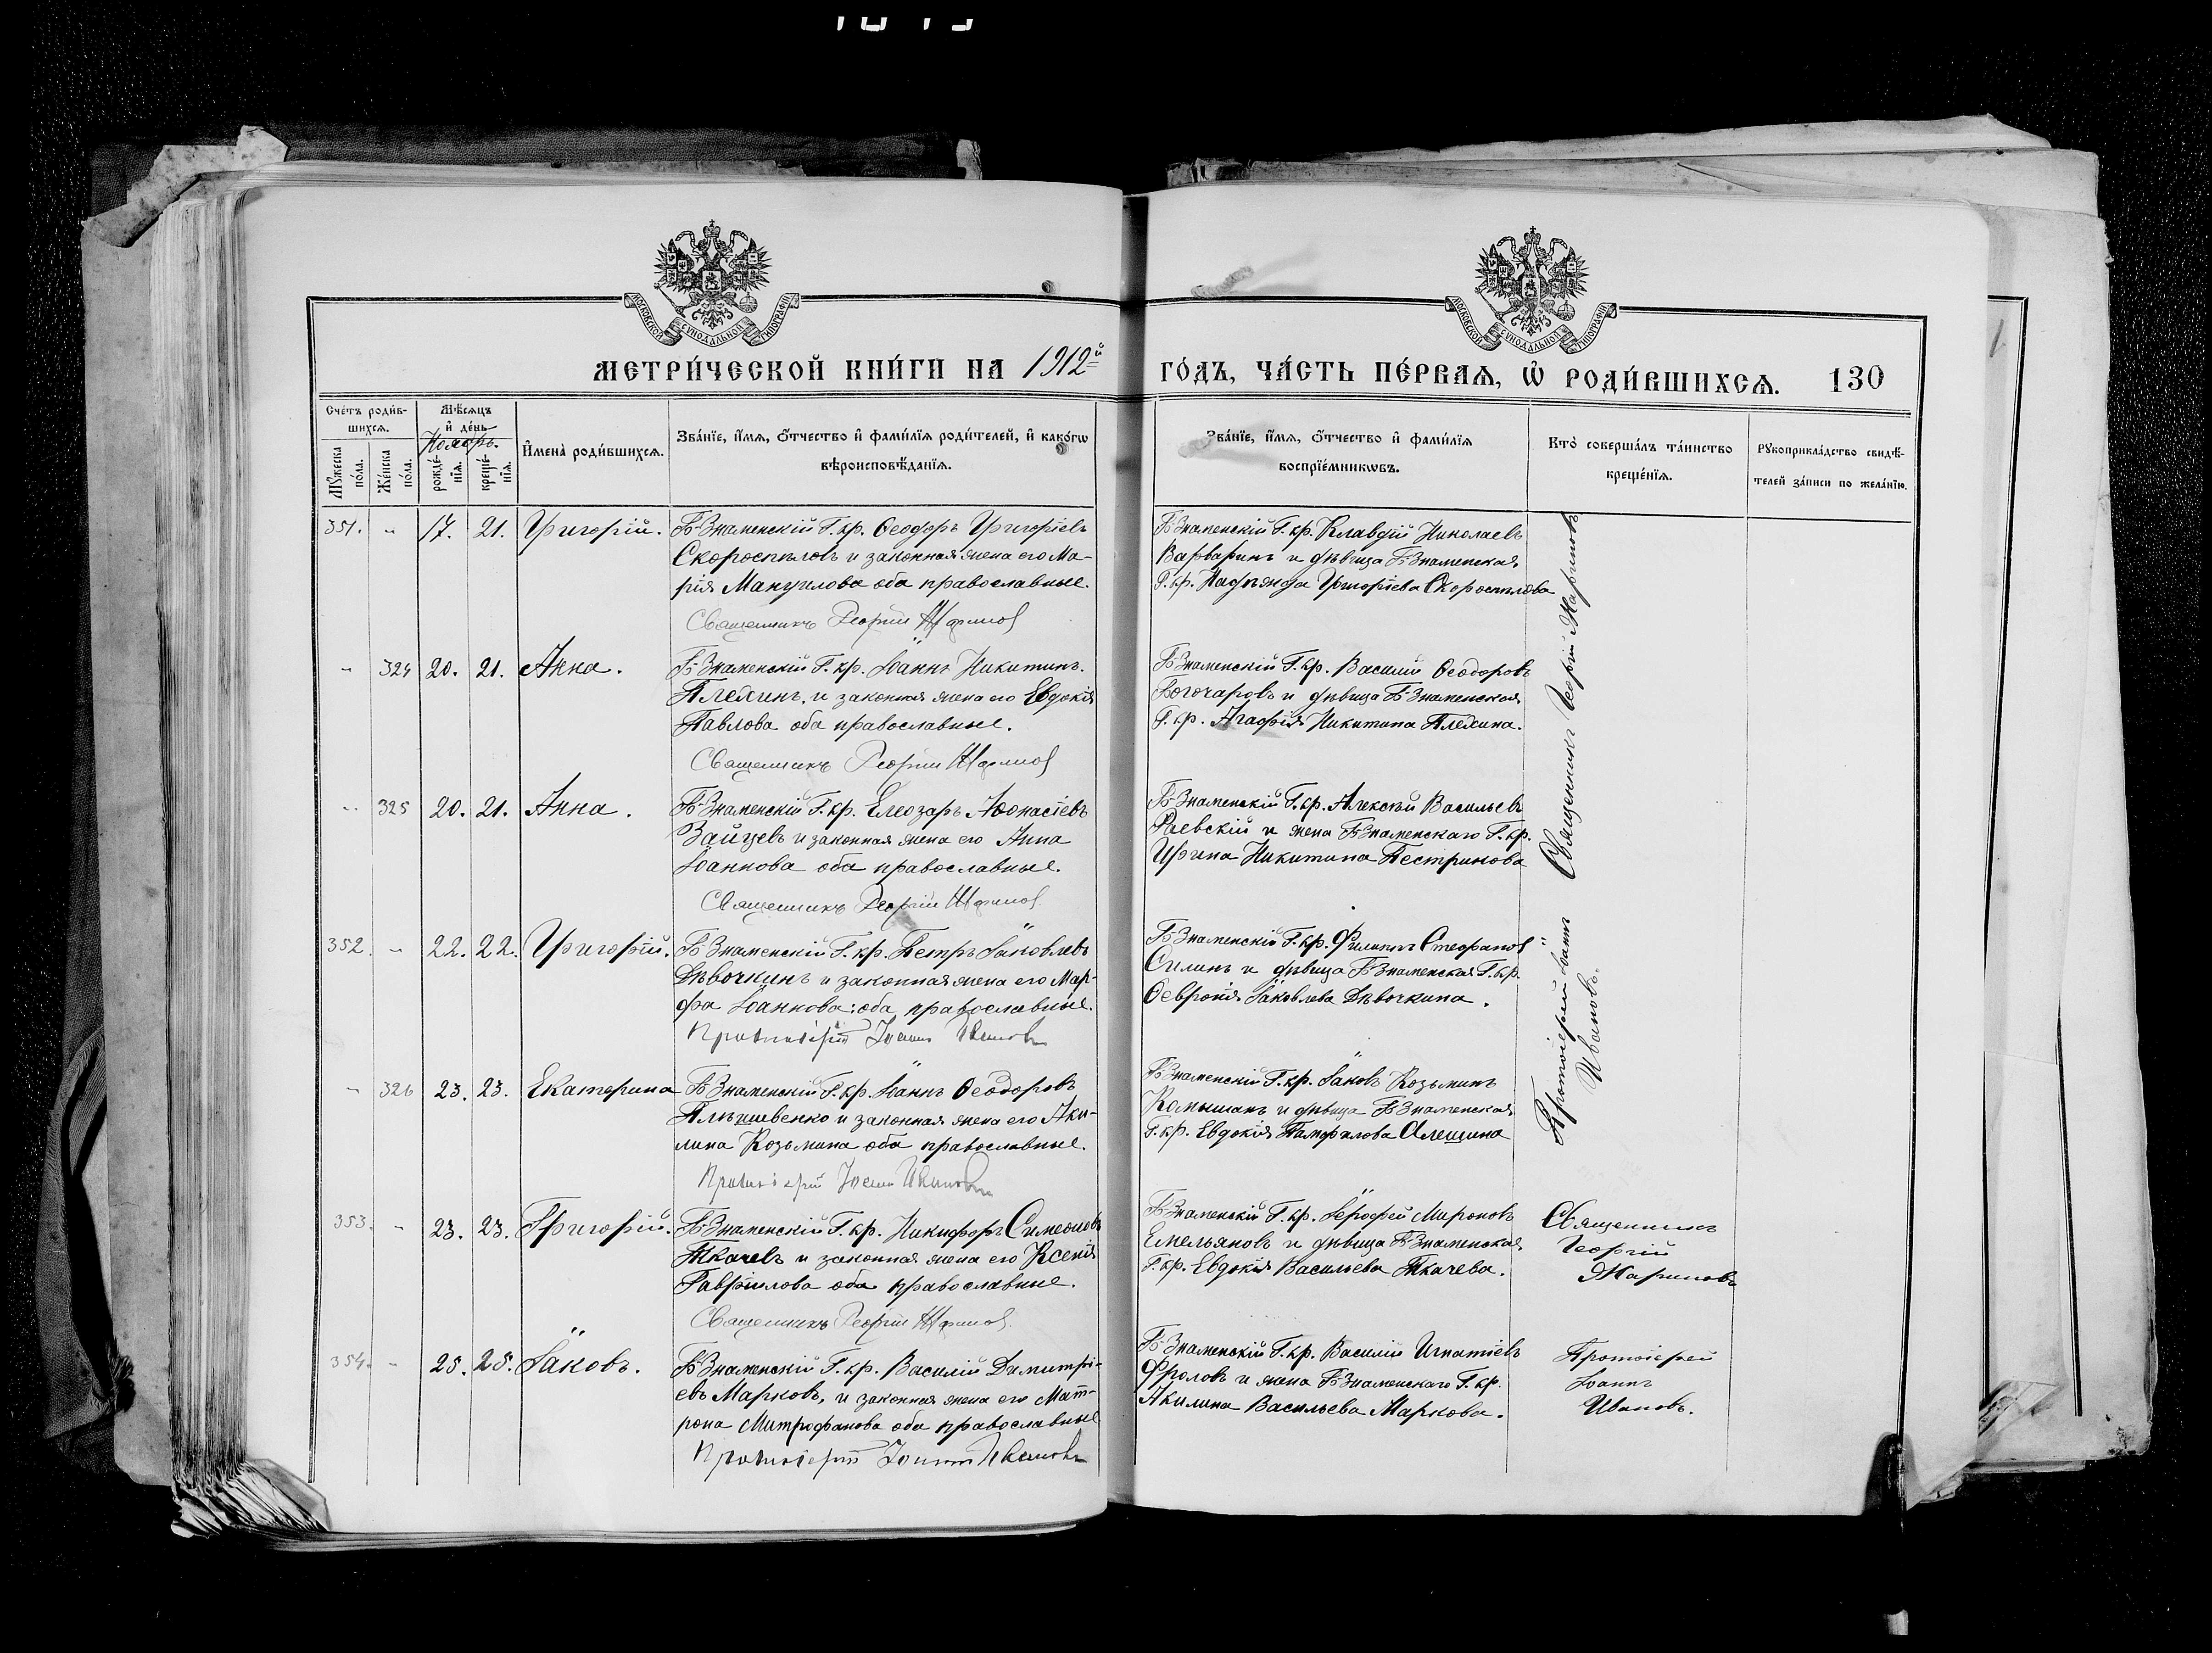 МОСКОВСКОЙ СѴНОДАЛЬНОЙ ТИПОГРАФІИ
МОСКОВСКОЙ СѴНОДАЛЬНОЙ ТИПОГРАФІИ
МЕТРИ́ЧЕСКОЙ КНИ́ГИ НА 1912й
ГО́ДЪ, ЧА́СТЬ ПЕ́РВАѦ, Ѡ РОДИ́ВШИХСѦ. 130
Сче́тъ роди́в-
шихсѧ.
Мꙋ́жеска по́ла.
Же́нска по́ла.
Мѣ́сѧцъ и де́нь
Ноябрь.
рожде́нїѧ.
креще́нїѧ.
Имена̀ роди́вшихсѧ.
Зва́нїе, и́мѧ, о́тчество и фами́лїѧ роди́телей, и како́гѡ
вѣроисповѣ́данїѧ.
Зва́нїе, и́мѧ, о́тчество и фами́лїѧ
воспрїе́мникѡвъ.
Кто̀ соверша́лъ та́инство
креще́нїѧ.
Рꙋкоприкла́дство свидѣ́-
телей за́писи по жела́нїю.
351. - 17. 21. Григорій. Б-Знаменскій Г. кр. Ѳеодоръ Григоріевъ
Скороспѣловъ и законная жена его Ма-
рія Мануилова оба православные.
Священникъ Георгій Жариновъ
Б-Знаменскій Г. кр. Клавдій Николаевъ
Варваринъ и дѣвица Б-Знаменская
Г. кр. Надежда Григоріева Скороспѣлова
Священникъ Георгій Жариновъ
- 324 20. 21. Анна. Б-Знаменскій Г. кр. Іоаннъ Никитинъ
Плехинъ, и законная жена его Евдокія
Павлова оба православные.
Священникъ Георгій Жариновъ
Б-Знаменскій Г. кр. Василій Ѳеодоровъ
Богочаровъ и дѣвица Б-Знаменская
Г. кр. Агафія Никитина Плехина.
- 325 20. 21. Анна. Б-Знаменскій Г. кр. Елеозаръ Аѳонасіевъ
Зайцевъ и законная жена его Анна
Іоаннова оба православные.
Священникъ Георгій Жариновъ
Б-Знаменскій Г. кр. Алексѣй Васильевъ
Раевскій и жена Б-Знаменскаго Г. кр.
Ирина Никитина Пестрикова
352. - 22. 22. Григорій. Б-Знаменскій Г. кр. Петръ Іаковлевъ
Дѣвочкинъ и законная жена его Мар-
фа Іоаннова: оба православные.
Протоіерей Іоаннъ Ивановъ
Б-Знаменскій Г. кр. Филиппъ Стефановъ
Силинъ и дѣвица Б-Знаменская Г. кр.
Ѳевронія Іаковлева Дѣвочкина.
Протоіерей Іоаннъ
Ивановъ.
- 326 23. 23. Екатерина Б-Знаменскій Г. кр. Іоаннъ Ѳеодоровъ
законная жена его Аки-
лина Козьмина оба православные.
Протоіерей Іоаннъ Ивановъ
Б-Знаменскій Г. кр. Іаковъ Козьминъ
Камышанъ и дѣвица Б-Знаменская
Г. кр. Евдокія Памфилова Алешина
353. - 23. 23. Григорій. Б-Знаменскій Г. кр. Никифоръ Симеоновъ
Ткачевъ и законная жена его Ксенія
Гавріилова оба православные.
Священникъ Георгій Жариновъ
Б-Знаменскій Г. кр. Іерофей Мироновъ
Емельяновъ и дѣвица Б-Знаменская
Г. кр. Евдокія Васильева Ткачева.
Священникъ
Георгій
Жариновъ
354. - 25. 25. Іаковъ. Б-Знаменскій Г. кр. Василій Димитрі-
евъ Марковъ, и законная жена его Мат-
рона Митрофанова оба православные
Протоіерей Іоаннъ Ивановъ
Б-Знаменскій Г. кр. Василій Игнатіевъ
Фроловъ и жена Б-Знаменскаго Г. кр.
Акилина Васильева Маркова.
Протоіерей
Іоаннъ
Ивановъ.